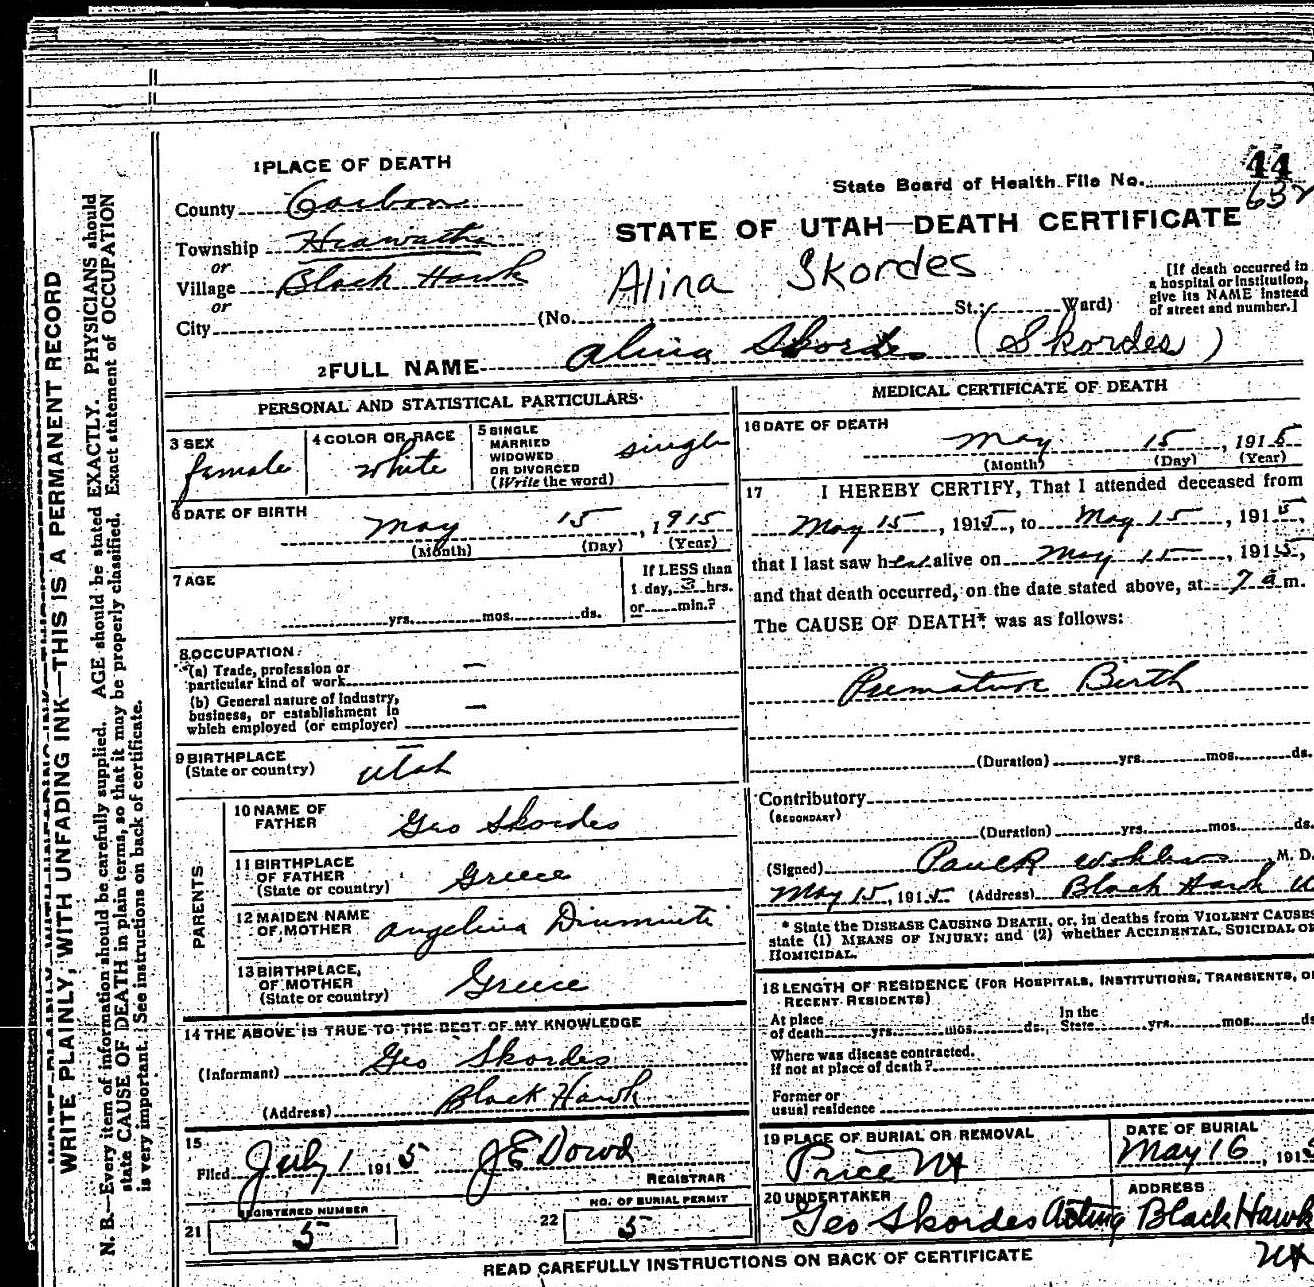 44
632
State Board of Health File No.
STATE OF UTAH—DEATH CERTIFICATE
1 PLACE OF DEATH
County Carbon
Township Hiawatha
or
Village Black Hawk
or
City
Alina Skordes
(No. St.; Ward)
[If death occurred in
a hospital or institution,
give its NAME instead
of street and number.]
2 FULL NAME Alina Skordes (Skordes)
PERSONAL AND STATISTICAL PARTICULARS
3 SEX
female
4 COLOR OR RACE
white
5 SINGLE
MARRIED
WIDOWED
OR DIVORCED
(Write the word)
single
6 DATE OF BIRTH
May 15, 1915
(Month) (Day) (Year)
7 AGE
yrs. mos. ds.
If LESS than
1 day, 3 hrs.
or min.?
8 OCCUPATION
(a) Trade, profession or
particular kind of work —
(b) General nature of industry,
business, or establishment in
which employed (or employer) —
9 BIRTHPLACE
(State or country) Utah
PARENTS
10 NAME OF
FATHER Geo Skordes
11 BIRTHPLACE
OF FATHER
(State or country) Greece
12 MAIDEN NAME
OF MOTHER Angelina
13 BIRTHPLACE,
OF MOTHER
(State or country) Greece
14 THE ABOVE IS TRUE TO THE BEST OF MY KNOWLEDGE
(Informant) Geo Skordes
(Address) Black Hawk
15
Filed July 1 1915 J E Dowd
REGISTRAR
REGISTERED NUMBER
21 5
NO. OF BURIAL PERMIT
22 5
MEDICAL CERTIFICATE OF DEATH
16 DATE OF DEATH
May 15, 1915
(Month) (Day) (Year)
17 I HEREBY CERTIFY, That I attended deceased from
May 15, 1915, to May 15, 1915,
that I last saw her alive on May 15, 1915,
and that death occurred, on the date stated above, at 7 a m.
The CAUSE OF DEATH* was as follows:
Premature Birth
(Duration) yrs. mos. ds.
Contributory
(SECONDARY)
(Duration) yrs. mos. ds.
(Signed) M. D.
May 15, 1915 (Address) Black Hawk U
* State the DISEASE CAUSING DEATH, or, in deaths from VIOLENT CAUSES
state (1) MEANS OF INJURY; and (2) whether ACCIDENTAL, SUICIDAL OR
HOMICIDAL.
18 LENGTH OF RESIDENCE (FOR HOSPITALS, INSTITUTIONS, TRANSIENTS, OR
RECENT RESIDENTS)
At place
of death yrs. mos. ds.
In the
State yrs. mos. ds
Where was disease contracted.
if not at place of death?
Former or
usual residence
19 PLACE OF BURIAL OR REMOVAL
Price Ut
DATE OF BURIAL
May 16, 1915
20 UNDERTAKER
Geo Skordes Acting
ADDRESS
Black Hawk
Ut
READ CAREFULLY INSTRUCTIONS ON BACK OF CERTIFICATE
WRITE PLAINLY, WITH UNFADING INK—THIS IS A PERMANENT RECORD
N. B.—Every item of information should be carefully supplied. AGE should be stated EXACTLY. PHYSICIANS should
state CAUSE OF DEATH in plain terms, so that it may be properly classified. Exact statement of OCCUPATION
is very important. See instructions on back of certificate.